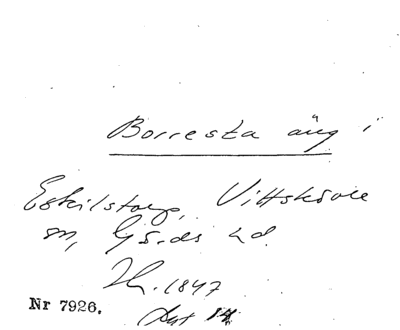 Borresta äng i
Eskilstorp, Vittskövle
sn, Gärds hd.
Sk. 1847
Nr 7926. Akt 14